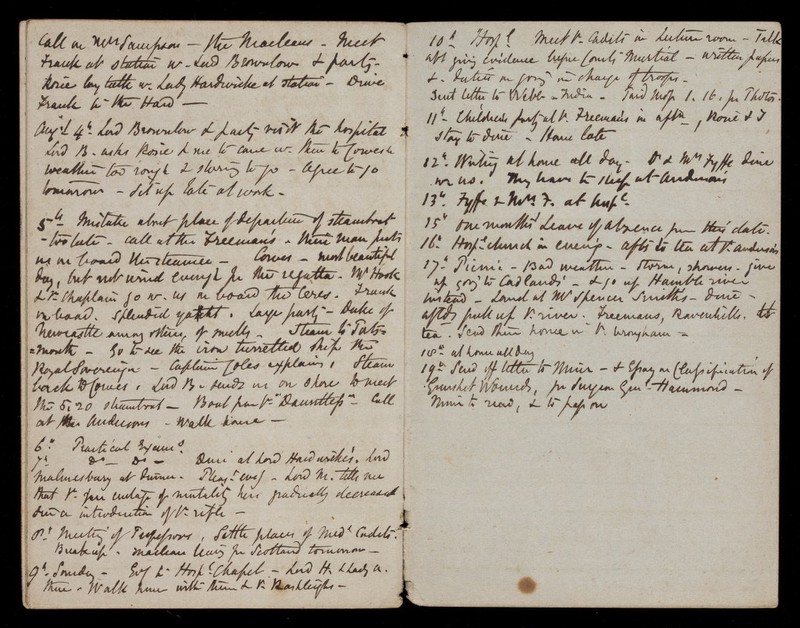 Call on Mrs Sampson - the Macleans - Meet
Frank at station w. Lord Brownlow & party -
Rosie lay teeth w. Lady Hardwicke at station - Drive
Frank to the Hard -
Augst 4th. Lord Brownlow & party visit the hospital
Lord B. asks Rosie & me to come w. them to Cowes
weather too rough & stormy to go - agree to go
tomorrow - Sit up late at work -
5th Mistake about place of departure of steamboat
- too late. Call at the Freeman's - their man puts
us on board the steamer - Cowes - most beautiful
day, but not wind enough for the regatta - Mr Hook
& Vr Chaplain go w. us on board the Ceres. Frank
on board. Splendid yacht. Large party - Duke of
Newcastle among others, of smells. Steam to Ports=
=mouth - Go to see the iron turretted ship the
Royal Sovereign - Captain Coles explains. Steam
back to Cowes. Lord B. sends us on shore to meet
the 5.20 steamboat - Boat from Vr "Dauntless" - Call
at the Andersons - Walk home -
6th Practical Exams.
7th Do - Do - Dine at Lord Hardwicke's. Lord
Malmesbury at dinner. Pleast. evg. - Lord M. tells me
that Vr. percentage of mortality has gradually decreased
since introduction of Vr. rifle -
8th Meeting of Professors, Settle places of Medl Cadets.
Break up. Macleans leave for Scotland tomorrow -
9th. Sunday - Evg to Hospl. Chapel - Lord H. & Lady A.
there - Walk home with them & Vr. Rashleighs -
10th Hospl. Meet Vr. Cadets in Lecture room - Talk
abt giving evidence before Courts Martial - written papers
& duties on going in charge of troops.
Sent letter to Webb - India. Paid Mofs 1. 16. for Photos.
11th Children's party at Vr. Freemans in aftn, Rosie & I
stay to dine - Home late
12th. Writing at home all day. Dr & Mrs Fyffe dine
w. us. They leave to sleep at Anderson's
13th. Fyffe & Mrs F. at hospl.
15th One month's leave of absence from this date.
16th Hospl. church in evening - after to tea at Vr. Andersons
17th Picnic - Bad weather - storm, showers. give
up going to Cadlands - & go up Hamble river
instead - Land at Mr Spencer Smith's - dine -
aftds pull up Vr. river. Freemans, Ravenhills.
tea. Send them home in Vr. brougham =
18th at home all day
19th Send off letter to Muir - & Essay on Classification of
Gunshot Wounds, for Surgeon Genl. Hammond -
Muir to read, & to pass on